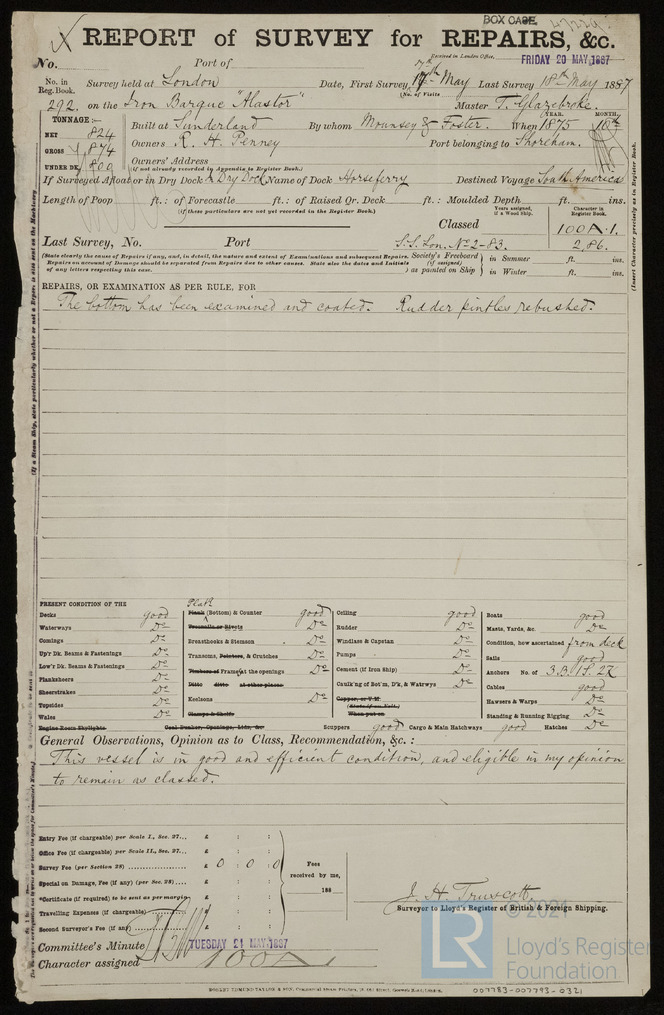 BOX CASE
REPORT of SURVEY for REPAIRS, &c.
No. Port of Received in London Office, FRIDAY 20 MAY 1887
No. in Reg. Book. Survey held at London Date, First Survey, 17th May Last Survey 18th May 1887
(No. of Visits
292 on the Iron Barque "Alastor" Master T. Glazebroke.
TONNAGE :- YEAR. MONTH.
NET 824 Built at Sunderland By whom Mounsey & Foster. When 1875 10
GROSS 874 Owners R. H. Penney Port belonging to Shoreham.
UNDER DK. 800 Owners' Address
(if not already recorded in Appendix to Register Book.)
If Surveyed Afloat or in Dry Dock Dry Dock Name of Dock Horseferry Destined Voyage South America
Length of Poop ft.: of Forecastle ft.: of Raised Qr. Deck ft.: Moulded Depth ft. ins.
(If these particulars are not yet recorded in the Register Book.) Years assigned, if a Wood Ship. Character in Register Book.
Classed 100A.1.
Last Survey, No. Port S.S. Lon. No 2-83. 2,86.
(State clearly the cause of Repairs if any, and, in detail, the nature and extent of Examinations and subsequent Repairs. Society's Freeboard in Summer ft. ins.
Repairs on account of Damage should be separated from Repairs due to other causes. State also the dates and Initials (if assigned)
of any letters respecting this case. as painted on Ship in Winter ft. ins.
(Insert Character precisely as in Register Book.)
REPAIRS, OR EXAMINATION AS PER RULE, FOR
The bottom has been examined and coated. Rudder pintles rebushed.
PRESENT CONDITION OF THE
Decks good
Waterways Do
Comings Do
Up'r Dk. Beams & Fastenings Do
Low'r Dk. Beams & Fastenings Do
Planksheers Do
Sheerstrakes Do
Topsides Do
Wales Do
Engine Room Skylights
Plate
Plank (Bottom) & Counter good
Treenails or Rivets Do
Breasthooks & Stemson Do
Transoms, Pointers, & Crutches Do
Timbers or Frames at the openings Do
Ditto ditto at other places
Keelsons Do
Clamps & Shelfs
Coal Bunker, Openings, Lids, &c.
Ceiling good
Rudder Do
Windlass & Capstan Do
Pumps Do
Cement (if Iron Ship) Do
Caulk'ng of Bot'm, D'k, & Watrwys Do
Copper, or Y.M.
(State if on Felt.)
When put on
Scuppers good Cargo & Main Hatchways good Hatches Do
Boats good
Masts, Yards, &c. Do
Condition, how ascertained from deck
Sails good
Anchors No. of 3.B. 1S. 2K
Cables good
Hawsers & Warps Do
Standing & Running Rigging Do
General Observations, Opinion as to Class, Recommendation, &c. :
This vessel is in good and efficient condition, and eligible in my opinion
to remain as classed.
Entry Fee (if chargeable) per Scale I., Sec. 27... £ : :
Office Fee (if chargeable) per Scale II., Sec. 27... £ : :
Survey Fee (per Section 28) £ 0 : 0 : 0
Special on Damage, Fee (if any) (per Sec. 28) £ : :
Certificate (if required) to be sent as per margin £ : :
Travelling Expenses (if chargeable) £ : :
Second Surveyor's Fee (if any) £ : :
Fees received by me, 188
J. H. Truscott
Surveyor to Lloyd's Register of British & Foreign Shipping.
Committee's Minute TUESDAY 24 MAY 1887
Character assigned 100A
© 2021
LR
Lloyd's Register
Foundation
007783-007793-0321